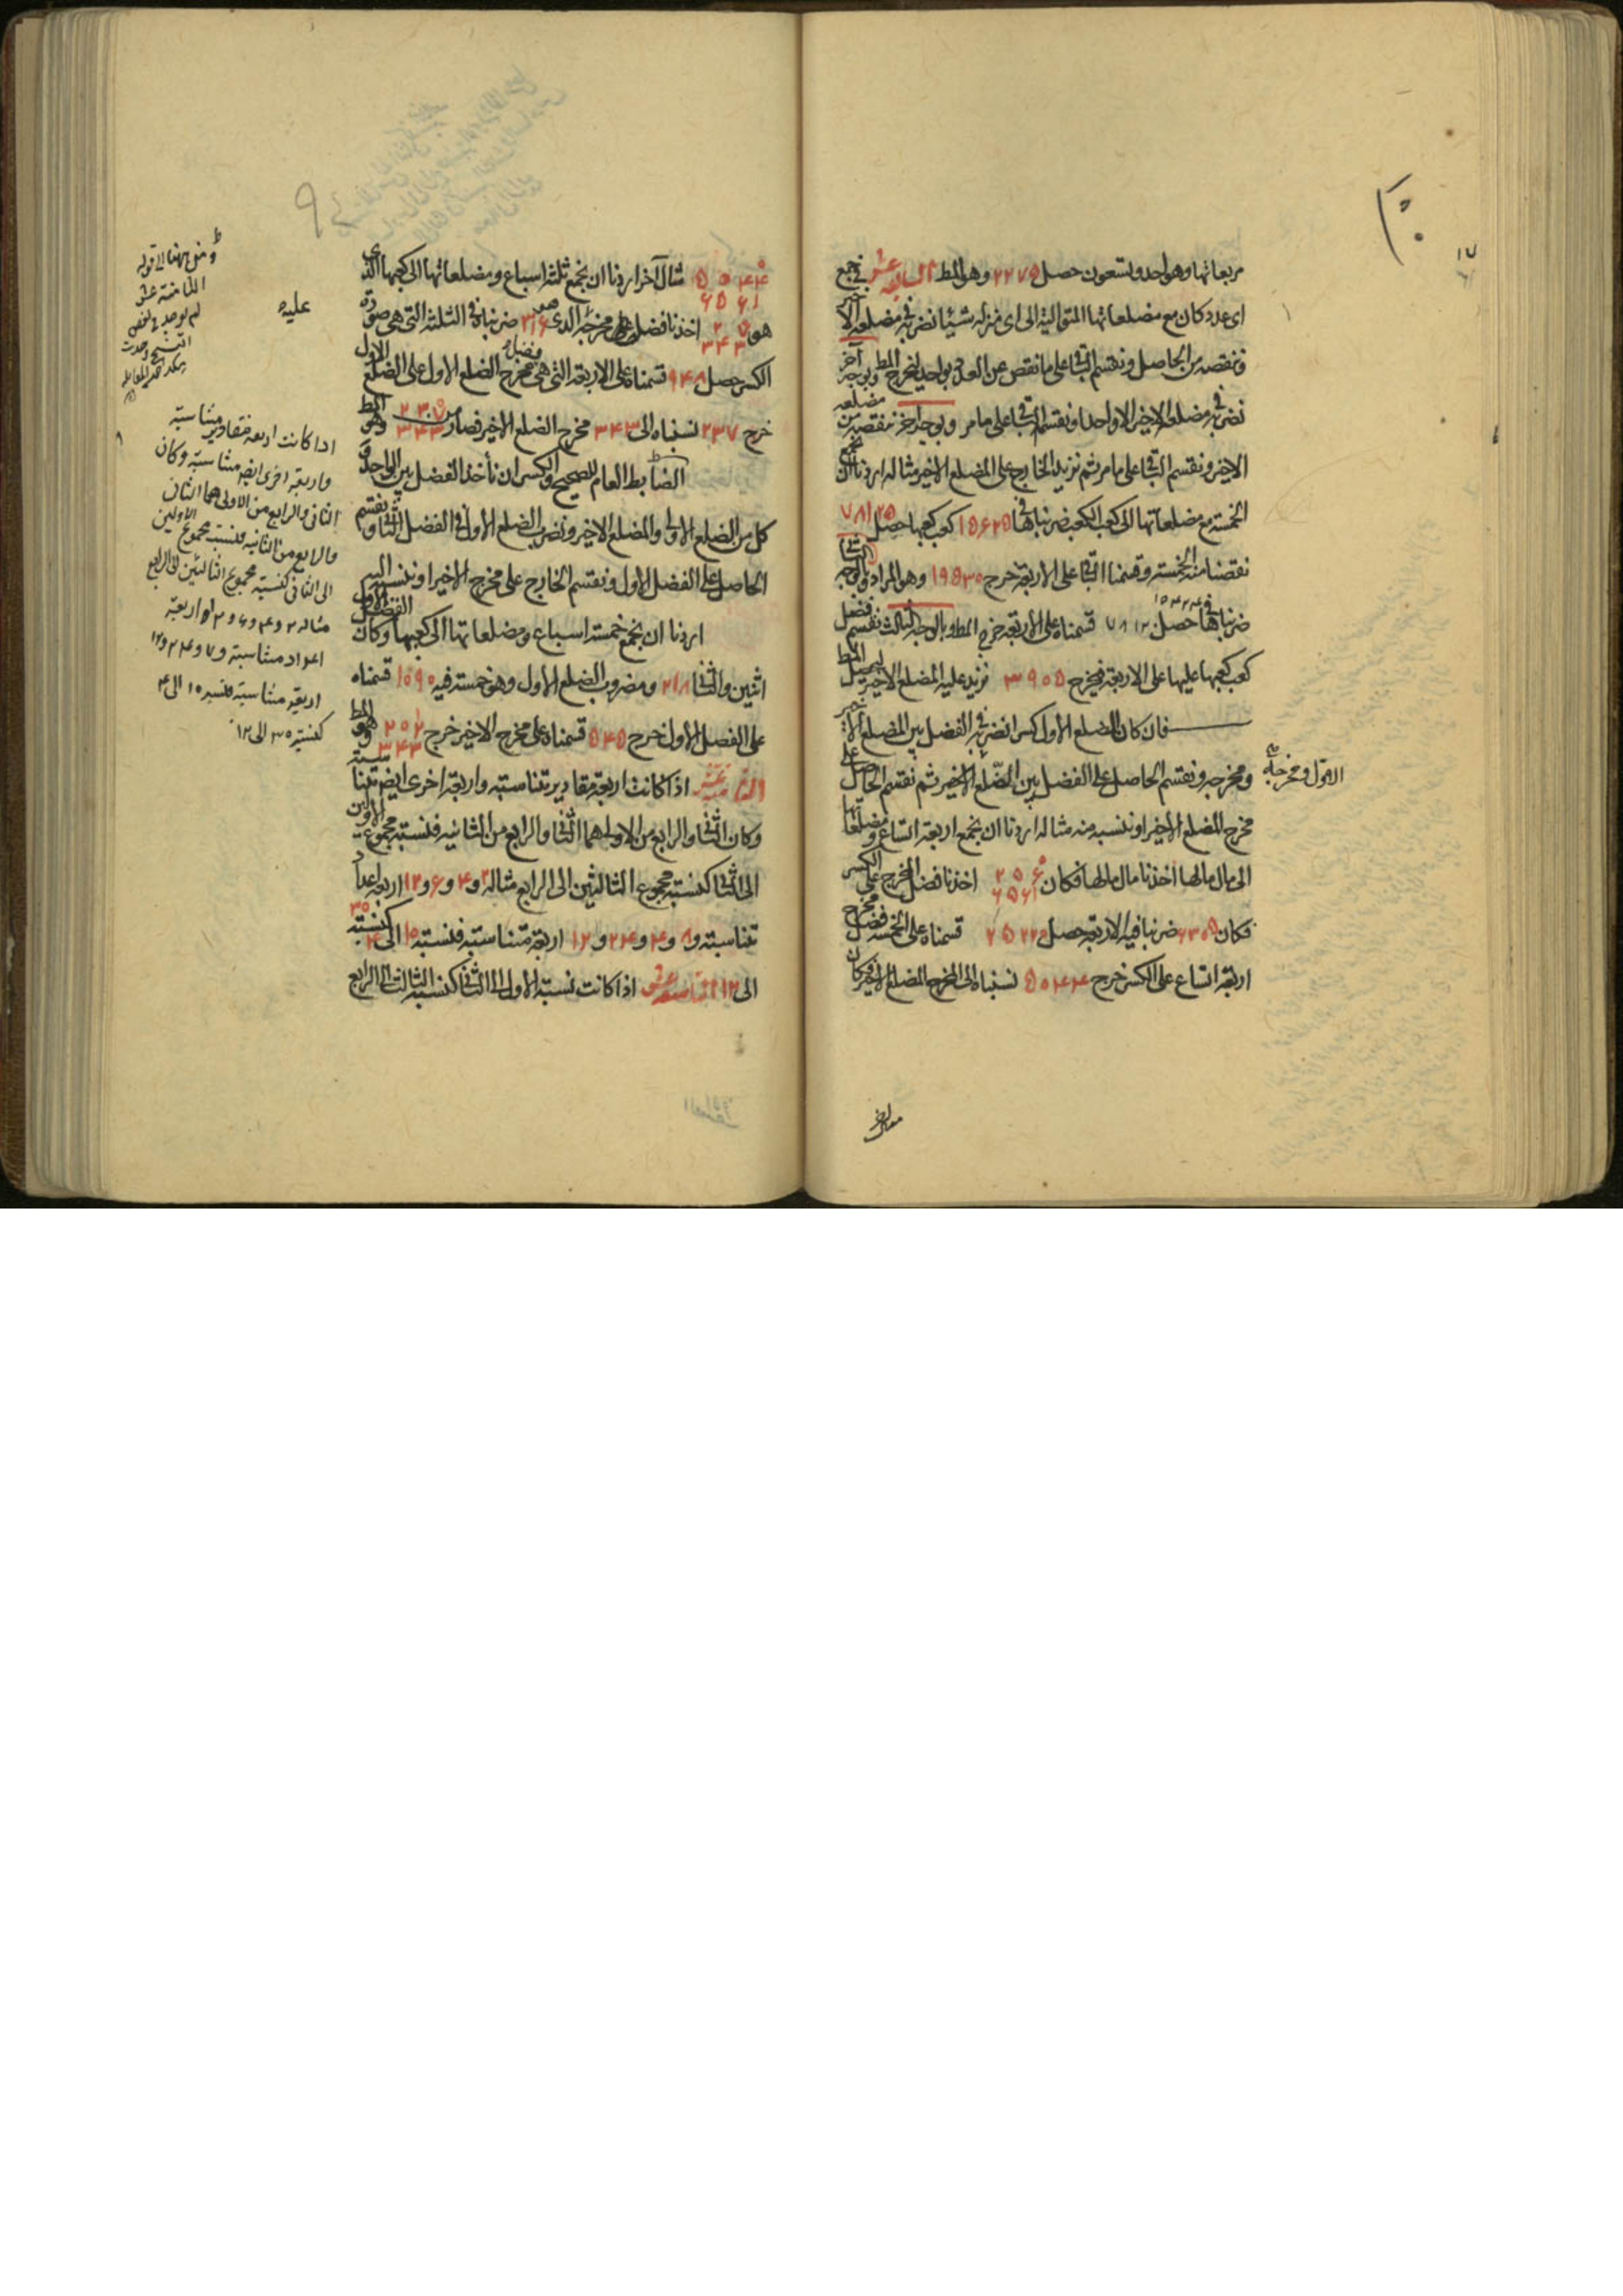 مربعاتها وهو احد وتسعون حصل ٢٢٧٥ وهو المط السابعة عشر فى جمع
اى عدد كان مع مضلعاتها المتوالية الى اى منزلة شيئا نضربه فى مضلعه الاخير
وننقصه من الحاصل ونقسم الباقى على ما نقص عن العدد بواحد ليخرج المط وبوجه آخر
نضربه فى مضلعه الاخير الا واحدا ونقسم الباقى على ما مر وبوجه آخر ننقصه من مضلعه
الاخير ونقسم الباقى على ما مر ثم نزيد الخارج على المضلع الاخير مثاله اردنا ان نجمع
الخمسة مع مضلعاتها الى كعب الكعب ضربناها فى ١٥٦٢٥ كعب كعبها حصل ٧٨١٢٥
نقصنا منه الخمسة وقسمنا الباقى على الاربعة خرج ١٩٥٣٠ وهو المراد وبالوجه الثانى
ضربناها فى ١٥٦٢٤ حصل ٧٨١٢ قسمناه على الاربعة خرج المط وبالوجه الثالث نقسم فضل
كعب كعبها عليها على الاربعة فيخرج ٣٩٠٥ نزيد عليه المضلع الاخير ليحصل المط
فان كان المضلع الاول كسرا نضربه فى الفضل بين المضلع الاخير
ومخرجه ونقسم الحاصل على الفضل بين المضلع الاخير ثم نقسم الحاصل على
الاول ومخرجه
مخرج المضلع الاخير او ننسبه منه مثاله اردنا ان نجمع اربعة اتساع ومضلعاتها
الى مال مالها اخذنا مال مالها فكان ٢٥٦ ٦٥٦١ اخذنا فضل المخرج على الكسر
فكان ٦٣٠٥ ضربنا فيه الاربعة حصل ٢٥٢٢٠ قسمناه على الخمسة فضل مخرج
اربعة اتساع على الكسر خرج ٥٠٤٤ نسبناه الى المخرج المضلع الاخير فكان
٥٠٤٤ ٦٥٦١ مثال آخر اردنا ان نجمع ثلثة اسباع ومضلعاتها الى كعبها الذى
هو ٢٧ ٣٤٣ اخذنا فضل مخرجه الذى هو ٣١٦ ضربناه فى الثلثة التى هى صورة
الكسر حصل ٩٤٨ قسمناه على الاربعة التى هى فضل مخرج الضلع الاول على الضلع الاول
خرج ٢٣٧ نسبناه الى ٣٤٣ مخرج الضلع الاخير فصار ٢٣٧ ٣٤٣ وهو المط
الضابط العام للصحيح والكسر ان نأخذ الفضل بين الواحد و
كل من الضلع الاول والمضلع الاخير ونضرب الضلع الاول فى الفضل الثانى ونقسم
الحاصل على الفضل الاول ونقسم الخارج على مخرج الاخير او ننسبه اليه
اردنا ان نجمع خمسة اسباع ومضلعاتها الى كعبها وكان الفضل الاول
اثنين والثانى ٢١٨ ومضروب الضلع الاول وهو خمسة فيه ١٠٩٠ قسمناه
على الفضل الاول خرج ٥٤٥ قسمناه على مخرج الاخير خرج ١ ٢٠٢ ٣٤٣ وهو المط
الثامنة عشر اذا كانت اربعة مقادير متناسبة واربعة اخرى ايضا متناسبة
وكان الثانى والرابع من الاولى هما الثانى والرابع من الثانية فنسبة مجموع الاولين
الى الثانى كنسبة مجموع الثالثين الى الرابع مثاله ٢ و ٤ و ٦ و ١٢ اربعة اعداد
متناسبة و ٨ و ٤ و ٢٤ و ١٢ اربعة متناسبة فنسبة ١٠ الى ٤ كنسبة ٣٠
الى ١٢ التاسعة عشر اذا كانت نسبة الاول الى الثانى كنسبة الثالث الى الرابع
من ههنا الى قوله
الثامنة عشر
لم توجد فى بعض
النسخ
عليه
اذا كانت اربعة مقادير متناسبة
واربعة اخرى ايضا متناسبة وكان
الثانى والرابع من الاولى هما الثانى
والرابع من الثانية فنسبة مجموع الاولين
الى الثانى كنسبة مجموع الثالثين الى الرابع
مثاله ٢ و ٤ و ٦ و ١٢ اربعة
اعداد متناسبة و ٧ و ٤ و ٢٤ و ١٢
اربعة متناسبة فنسبة ١٠ الى ٤
كنسبة ٣٠ الى ١٢